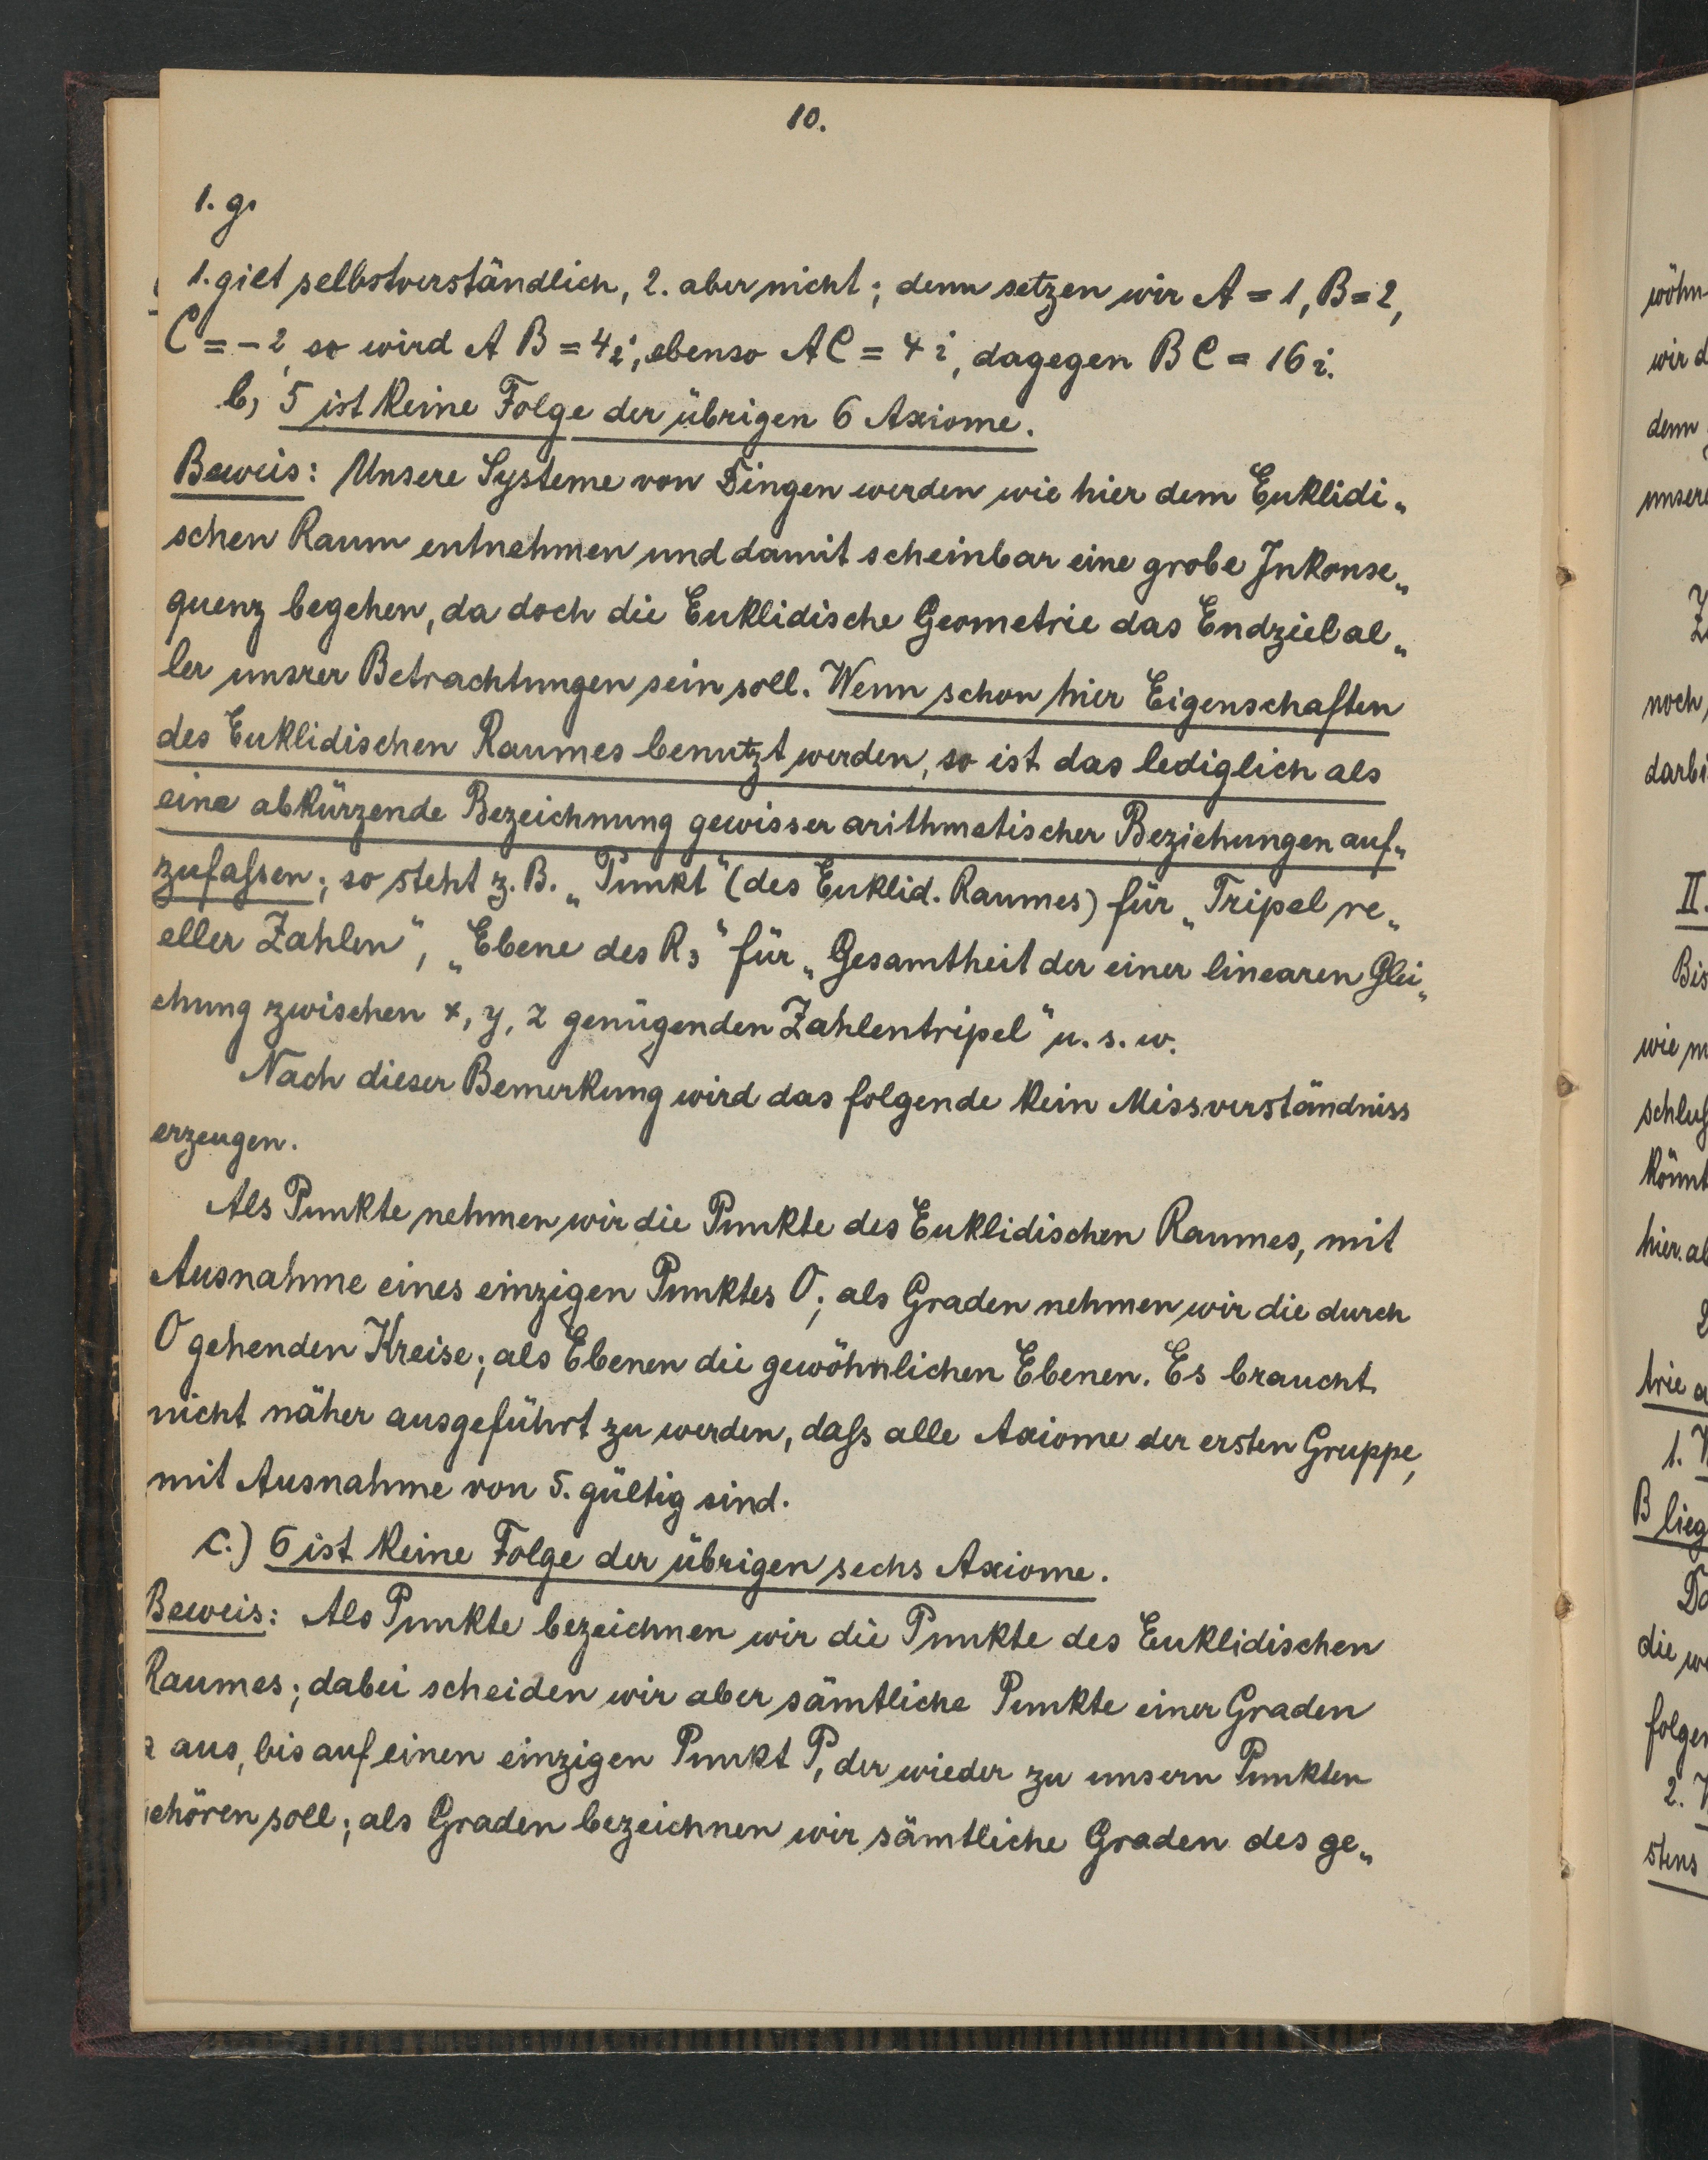 10.
1. g.
1. gilt selbstverständlich, 2. aber nicht; denn setzen wir A = 1, B = 2,
C = - 2, so wird A B = 4i, ebenso A C = 4 i, dagegen B C = 16 i.
b, 5 ist keine Folge der übrigen 6 Axiome.
Beweis: Unsere Systeme von Dingen werden wie hier dem Euklidi„
schen Raum entnehmen und damit scheinbar eine grobe Inkonse„
quenz begehen, da doch die Euklidische Geometrie das Endziel al„
ler unsrer Betrachtungen sein soll. Wenn schon hier Eigenschaften
des Euklidischen Raumes benutzt werden, so ist das lediglich als
eine abkürzende Bezeichnung gewisser arithmetischer Beziehungen auf„
zufaſsen; so steht z. B. „Punkt“ (des Euklid. Raumes) für „Tripel re„
eller Zahlen“, „Ebene des R3“ für „Gesamtheit der einer linearen Glei„
chung zwischen x, y, z genügenden Zahlentripel“ u. s. w.
Nach dieser Bemerkung wird das folgende kein Missverständniss
erzeugen.
Als Punkte nehmen wir die Punkte des Euklidischen Raumes, mit
Ausnahme eines einzigen Punktes O; als Graden nehmen wir die durch
O gehenden Kreise; als Ebenen die gewöhnlichen Ebenen. Es braucht
nicht näher ausgeführt zu werden, daſs alle Axiome der ersten Gruppe,
mit Ausnahme von 5. gültig sind.
c.) 6 ist keine Folge der übrigen sechs Axiome.
Beweis: Als Punkte bezeichnen wir die Punkte des Euklidischen
Raumes; dabei scheiden wir aber sämtliche Punkte einer Graden
aus, bis auf einen einzigen Punkt P, der wieder zu unsern Punkten
ehören soll; als Graden bezeichnen wir sämtliche Graden des ge„
wöhn
wir d
denn
unsere
noch
darbi
II.
Bis
wie m
schluſ
könnt
hier ab
trie a
1. W
B lieg
Da
die we
folgen
2. W
stens